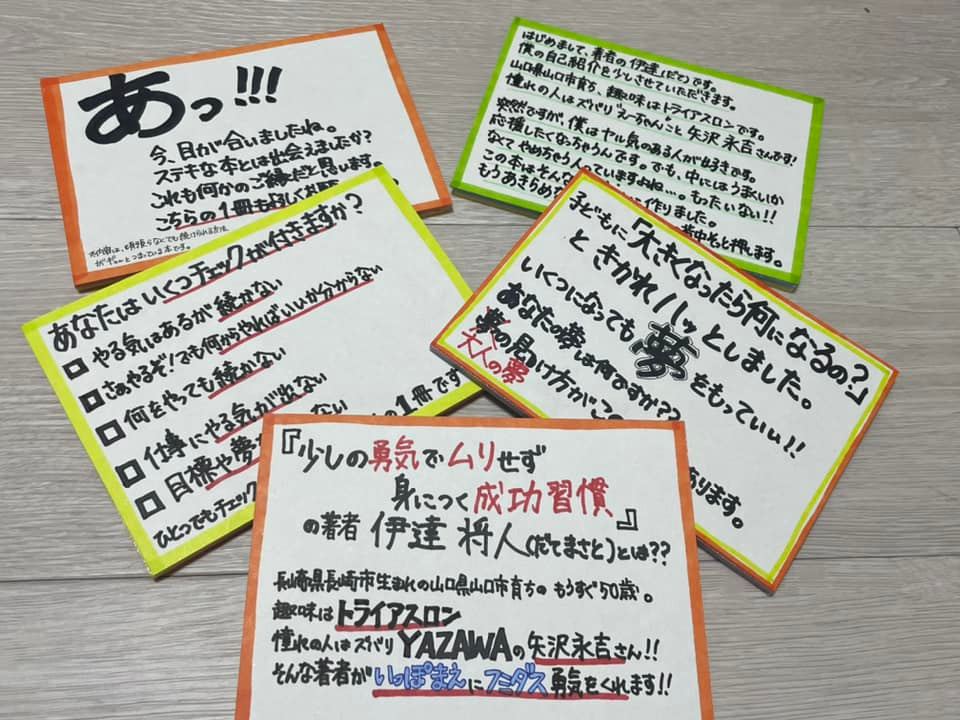 あっ!!!
今、目が合いましたね。
ステキな本とは出会えましたか?
これも何かのご縁だと思います。
こちらの1冊も
はじめまして、著者の伊達(だて)です。
僕の自己紹介を少しさせていただきます。
山口県山口市育ち、趣味はトライアスロンです。
憧れの人はズバリ えーちゃんこと 矢沢 永吉さんです!
突然ですが、僕はヤル気のある人が好きです。
応援したくなっちゃうんです。でも、中にはうまくいか
なくて やめちゃう人っていますよね…。もったいない!!
この本はそんな に作りました。
もうあきらめな 背中そっと押します。
あなたはいくつチェックが付きますか?
□ やる気はあるが 続かない
□ さぁやるぞ!でも何からやればいいか分からない
□ 何をやっても続かない
□ 仕事にやる気が出ない
□ 目標や夢 ない
ひとつでもチェック の1冊です
子どもに「大きくなったら何になるの?」
ときかれハッとしました。
いくつになっても夢をもっていい!!
あなたの夢は何ですか??
夢の見つけ方がこの
大人の夢
あります。
『少しの勇気でムリせず
身につく成功習慣』
の著者 伊達 将人(だてまさと)とは??
長崎県長崎市生まれの山口県山口市育ちの もうすぐ50歳。
趣味はトライアスロン
憧れの人はズバリ YAZAWAの矢沢永吉さん!!
そんな著者が いっぽまえにフミダス 勇気をくれます!!